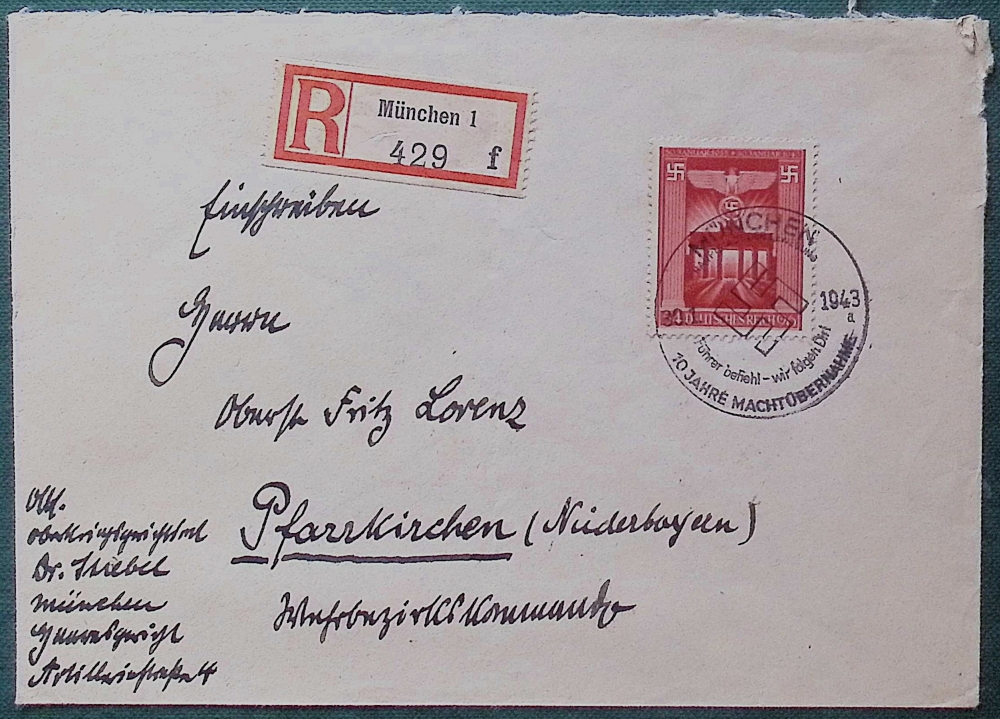 R
München 1
429 f
Einschreiben
Herrn
Oberst Fritz Lorenz
Pfarrkirchen (Niederbayern)
Wehrbezirkskommando
DEUTSCHES REICH
MÜNCHEN
30.1. 1943
a
Führer befiehl - wir folgen Dir!
10 JAHRE MACHTÜBERNAHME
Abs.
Oberkriegsgerichtsrat
Dr. Stiebel
München
Heeresgericht